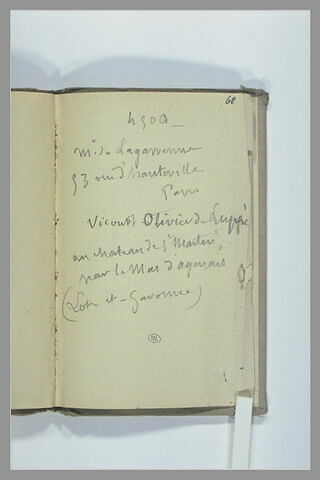 60
4500
Mr de Lagarrenne
53 rue d'hauteville
Paris
Vicomte Olivier de Luppé
au chateau de St Martin,
par le Mas d'agenais
(Lot et-Garonne)